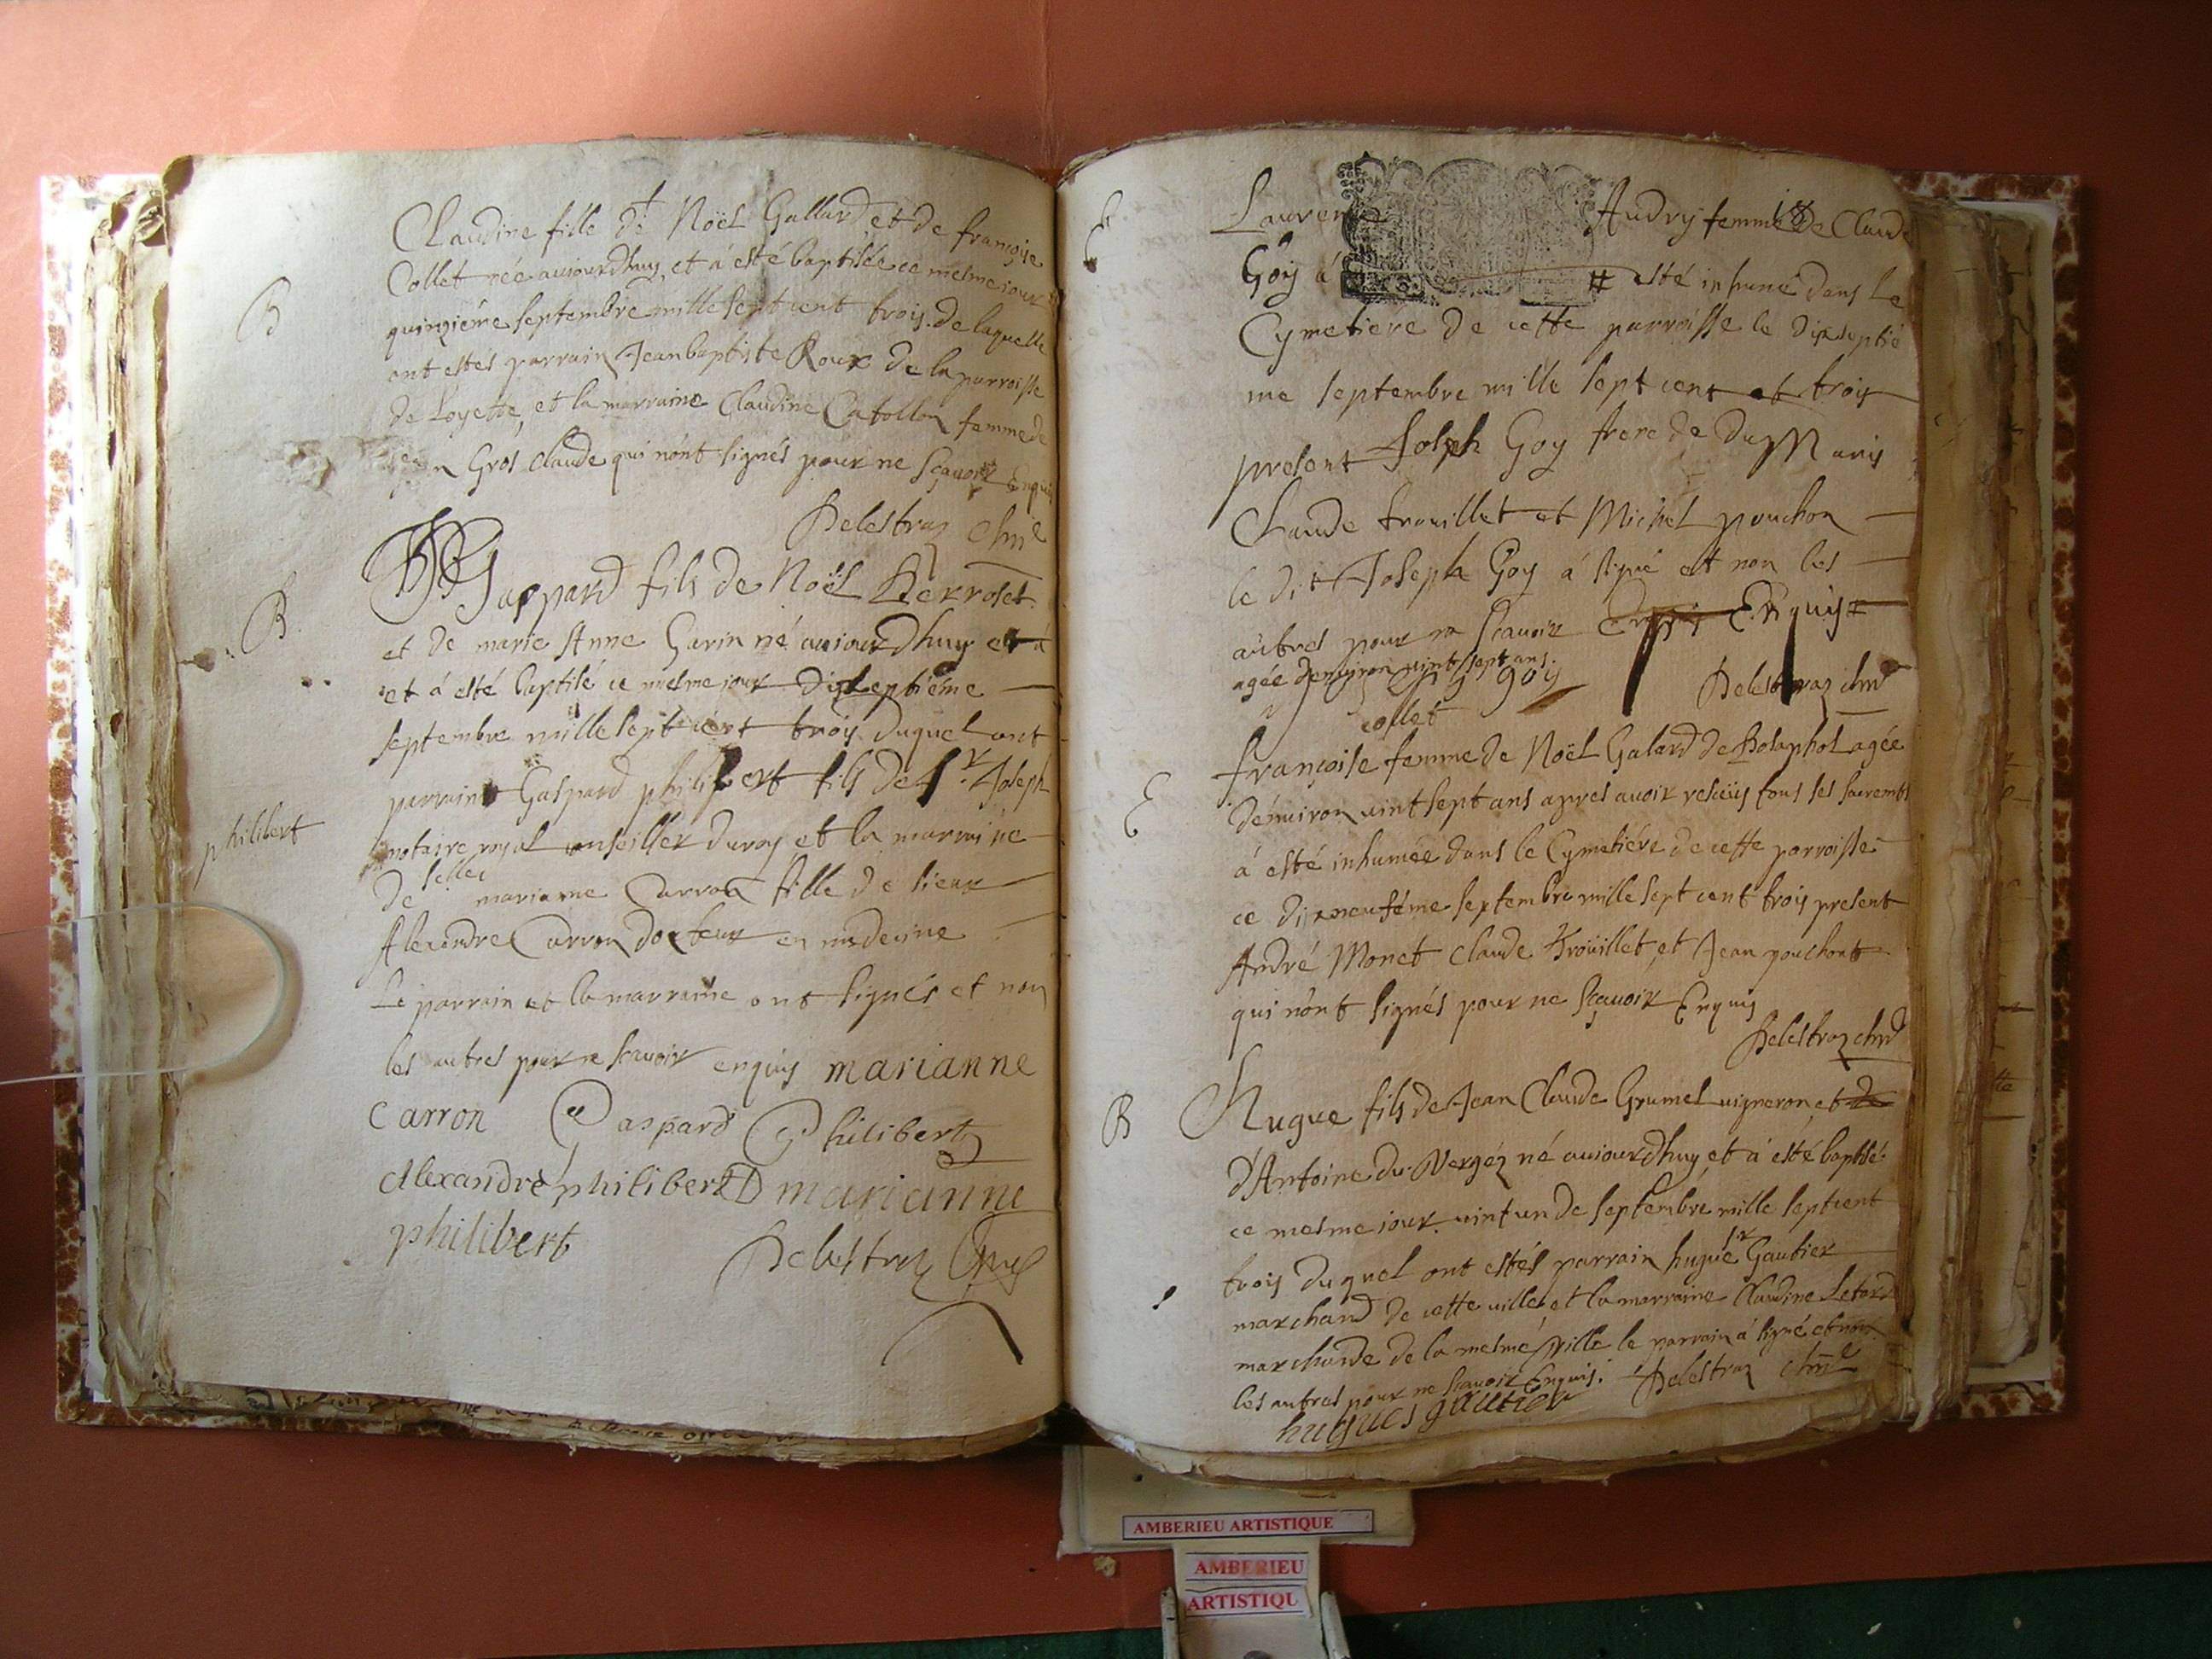 Claudine fille de Noël Gallard et de françoise
Collet née aujourdhuy et à esté baptisée ce mesme jour
B
quinziéme septembre mille sept cent trois. de laquelle
ont estés parrain Jean baptiste Roux de la parroisse
de Loyette, et la marraine Claudine Catollon femme de
Jean Gros claude qui nónt signés pour ne sçavoir Enquis
Delestraz
Gaspard fils de Noël
B.
et de marie Anne Garin né aujourdhuy
et á esté baptisé ce mesme jour dixseptiéme
septembre mille sept cent trois. duquel ont
parrain Gaspard philibert fils de Sr. Joseph
philibert
notaire royal conseiller du roy et la marraine
deselle marianne Carron fille de sieur
Alexandre Carron docteur en medecine
Le parrain et la marraine ont signés et non
les autres pour ne scavoir enquis marianne
Carron Gaspard Philibert
Alexandre philibert marianne
philibert Delestraz
Lauren Audry femme de Claude
18
E
Goy á # esté inhumé dans le
Cymetiére de cette parroisse le dixseptié
me septembre mille sept cent et trois
present Joseph Goy frere de du Mary
Claude trouillet et Michel pouchon
le dit Joseph Goy á signé et non les
autres pour ne scavoir Enquis Enquis #
agée denviron vint sept ans.
goy Delestraz
collet
françoise femme de Noël Galard de agée
E
dénviron vint sept ans apres avoir reseüs tous ses sacremts
á esté inhumée dans le Cymetiére de cette parroisse
ce dixneuféme septembre mille sept cent trois present
André Monet Claude Trouillet, et Jean pouchont
qui nónt signés pour ne sçavoir Enquis
Delestraz
B Hugue fils de Jean Claude Grumel vigneron, et de
d'Antoine du Vergéz né aujourdhuy et á esté baptisé
ce mesme jour. vint un de septembre mille sept cent
trois duquel ont estés parrain hugue sr Gautier
marchand de cette ville, et la marraine Claudine
marchande de la mesme ville le parrain á signé et non
les autres pour ne scavoir Enquis. Delestraz
hugues gautier
AMBERIEU ARTISTIQUE
AMBERIEU
ARTISTIQU